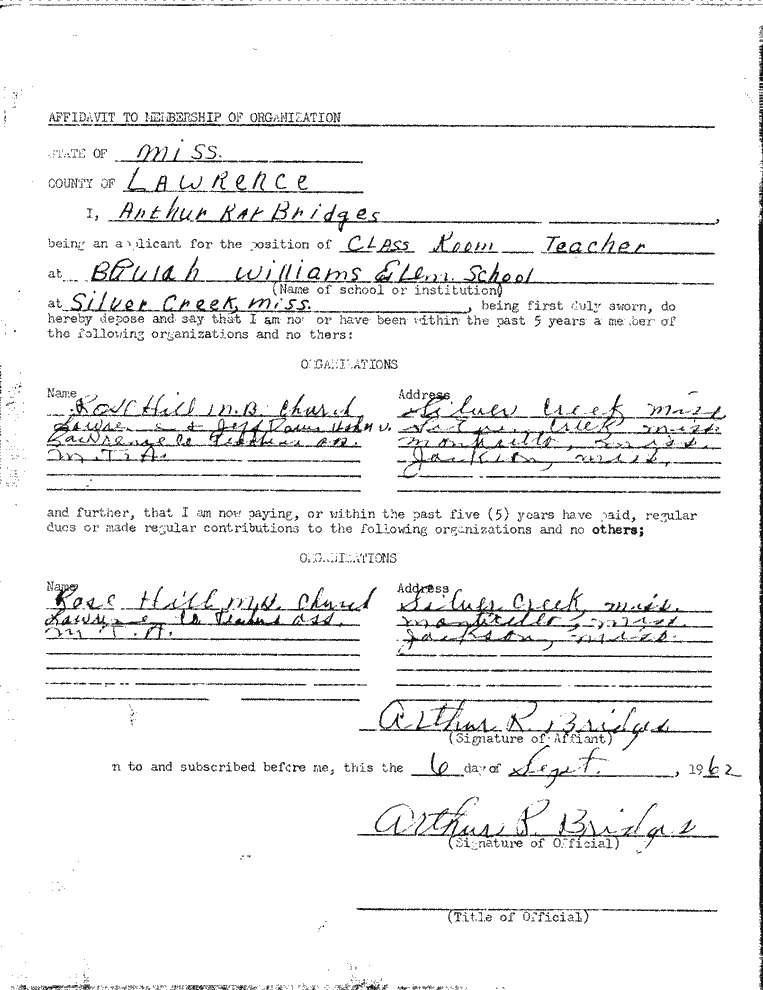 AFFIDAVIT TO MEMBERSHIP OF ORGANIZATION
STATE OF Miss.
COUNTY OF LAWRENCE
I, Arthur Kar Bridges,
being an applicant for the position of CLASS Room Teacher
at Beulah Williams Elem. School
(Name of school or institution)
at Silver Creek, Miss., being first duly sworn, do
hereby depose and say that I am now or have been within the past 5 years a member of
the following organizations and no thers:
ORGANIZATIONS
Name Address
Rose Hill M.B. Church Silver Creek Miss
& Jeff Davis Creek Miss.
Lawrence Co Teachers ass. Monticello, Miss.
M.T.A. Jackson, Miss.
and further, that I am now paying, or within the past five (5) years have paid, regular
dues or made regular contributions to the following organizations and no others;
ORGANIZATIONS
Name Address
Rose Hill M.B. Church Silver Creek, Miss.
Lawrence Co Teachers ass. Monticello, Miss.
M.T.A. Jackson, Miss.
Arthur R. Bridges
(Signature of Affiant)
n to and subscribed before me, this the 6 day of Sept., 1962
Arthur R. Bridges
(Signature of Official)
(Title of Official)